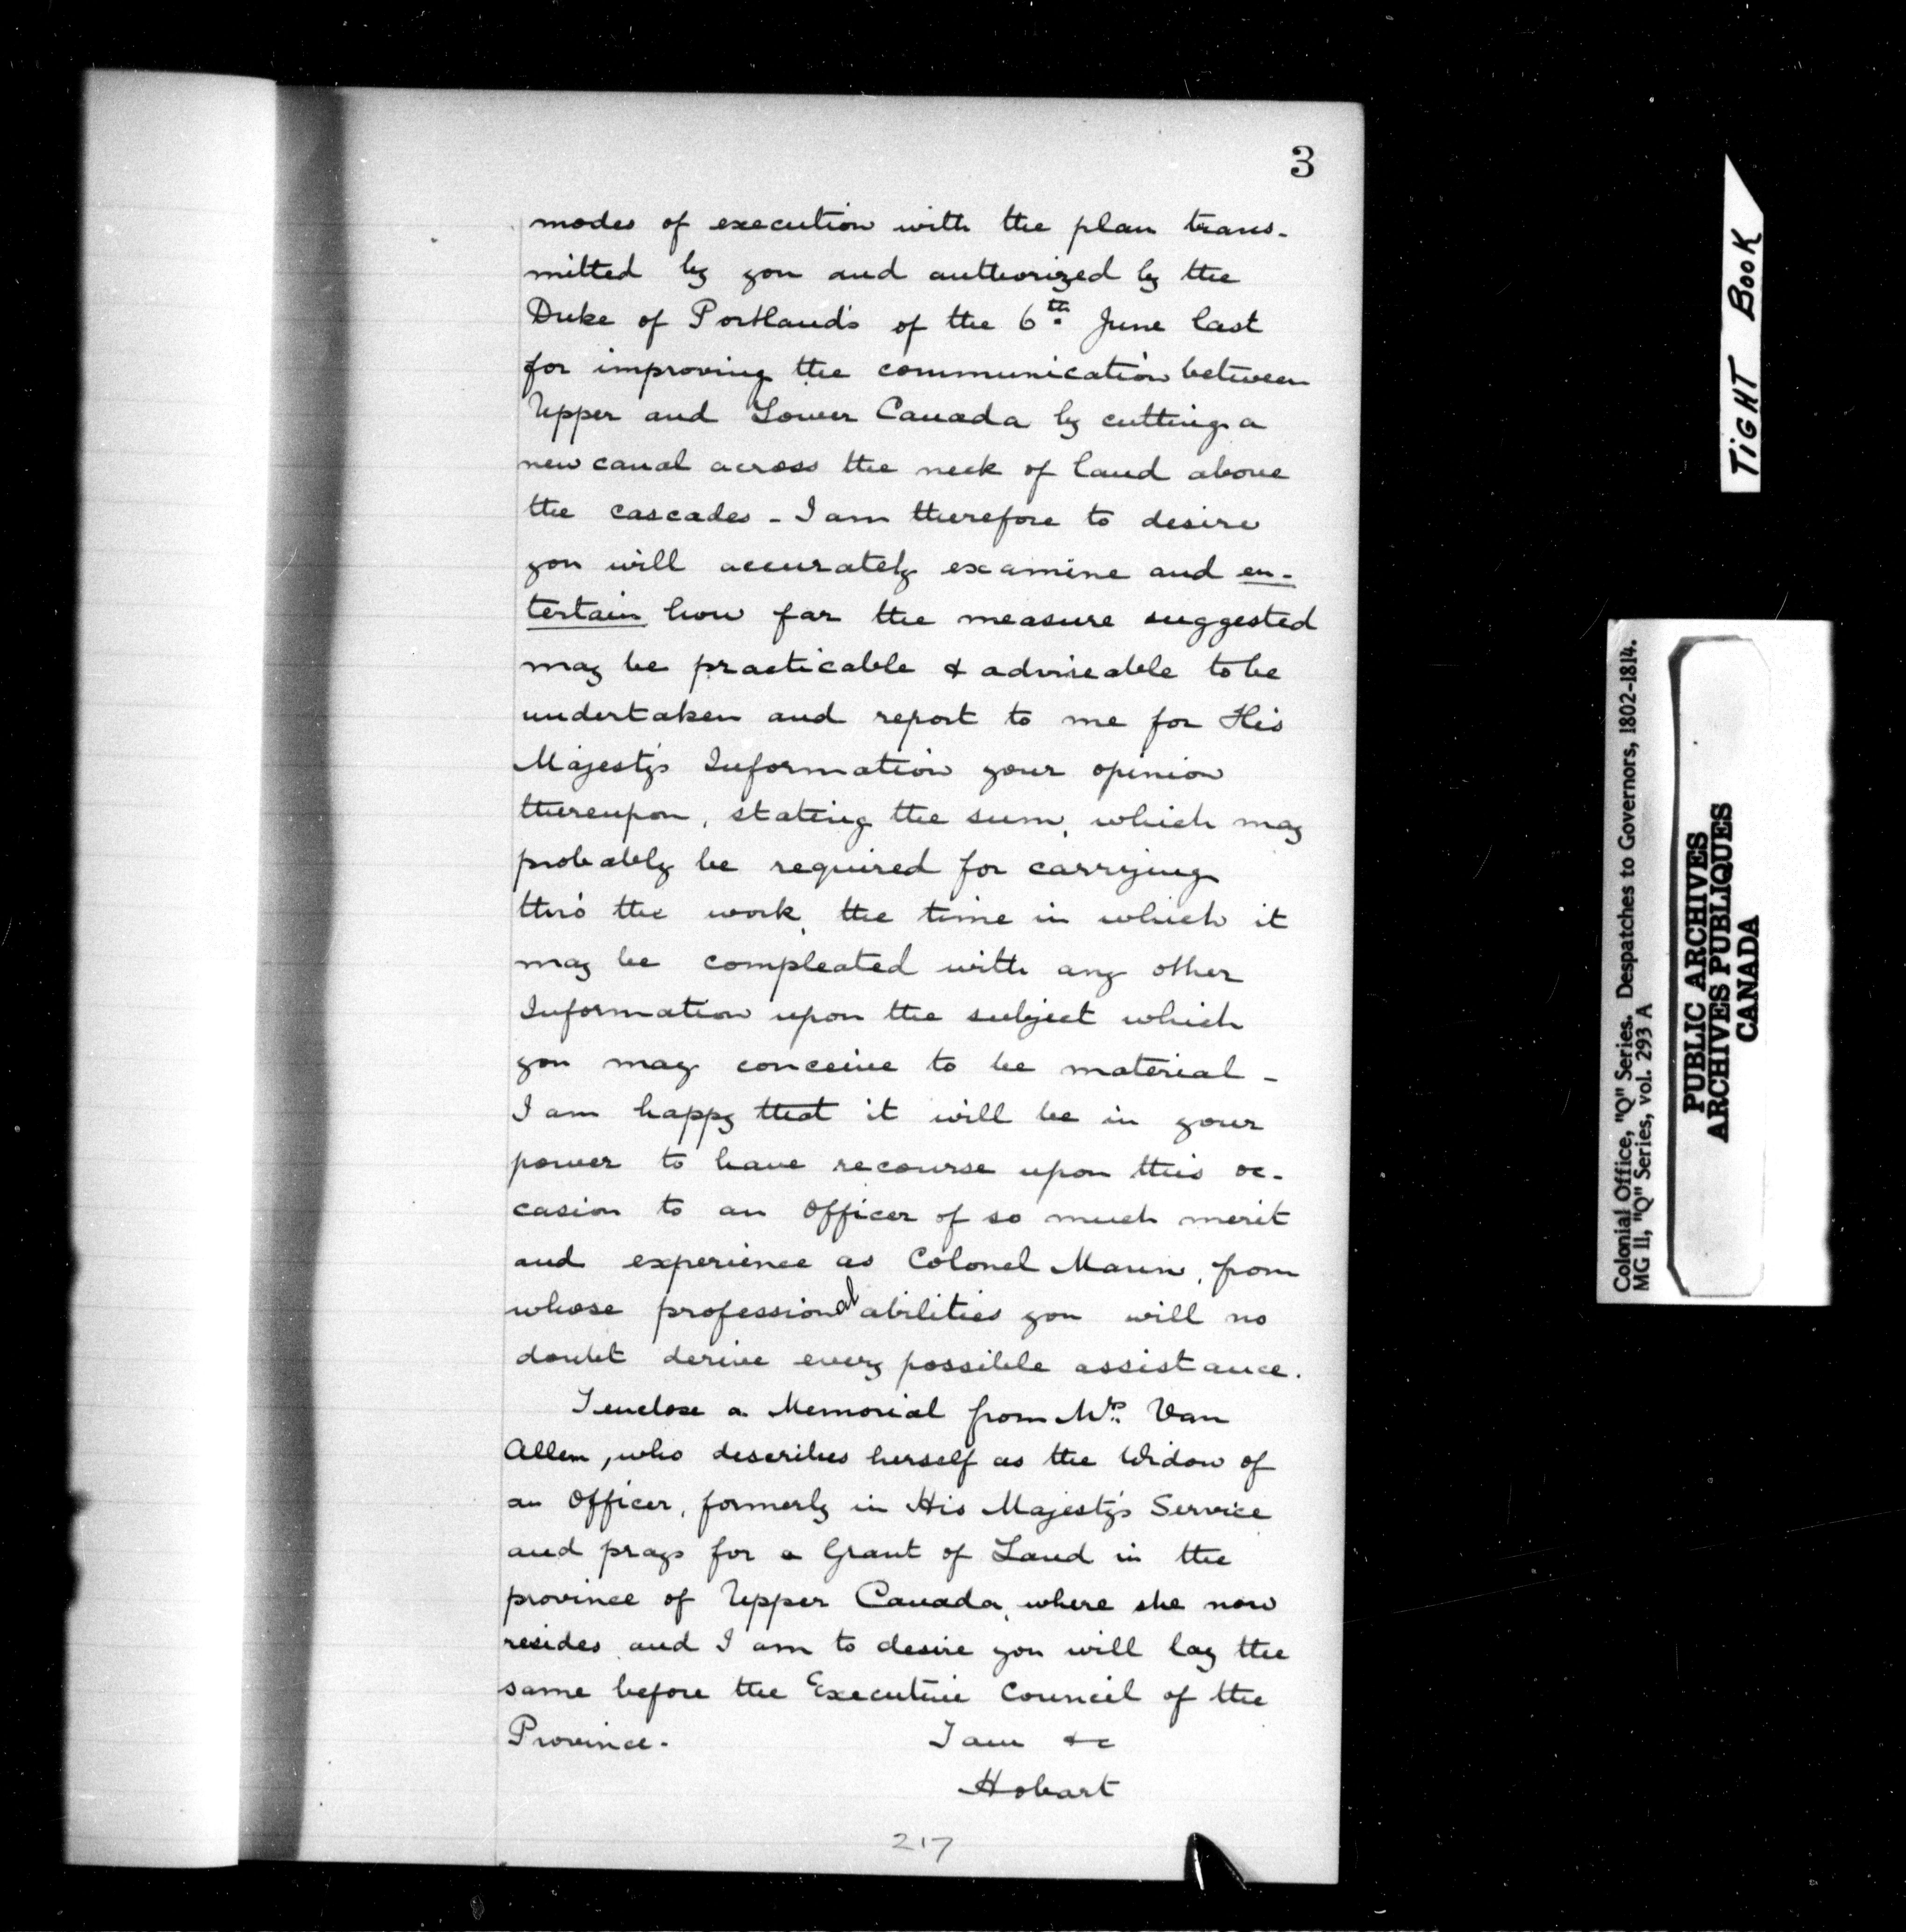 3
modes of execution with the plan trans-
mitted by you and authorized by the
Duke of Portland's of the 6th June last
for improving the communication between
Upper and Lower Canada by cutting a
new canal across the neck of land above
the cascades - I am therefore to desire
you will accurately examine and en-
tertain how far the measure suggested
may be practicable & adviseable to be
undertaken and report to me for His
Majesty's Information your opinion
thereupon, stating the sum, which may
probably be required for carrying
thro' the work, the time in which it
may be compleated with any other
Information upon the subject which
you may conceive to be material -
I am happy that it will be in your
power to have recourse upon this oc-
casion to an Officer of so much merit
and experience as Colonel Mann, from
whose professional abilities you will no
doubt derive every possible assistance.
I enclose a Memorial from Mrs. Van
Allen, who describes herself as the Widow of
an Officer, formerly in His Majesty's Service
and prays for a Grant of Land in the
province of Upper Canada, where she now
resides and I am to desire you will lay the
same before the Executive Council of the
Province.
I am &c
Hobart
217
TIGHT BOOK
Colonial Office, "Q" Series. Despatches to Governors, 1802-1814.
MG 11, "Q" Series, vol. 293 A
PUBLIC ARCHIVES
ARCHIVES PUBLIQUES
CANADA